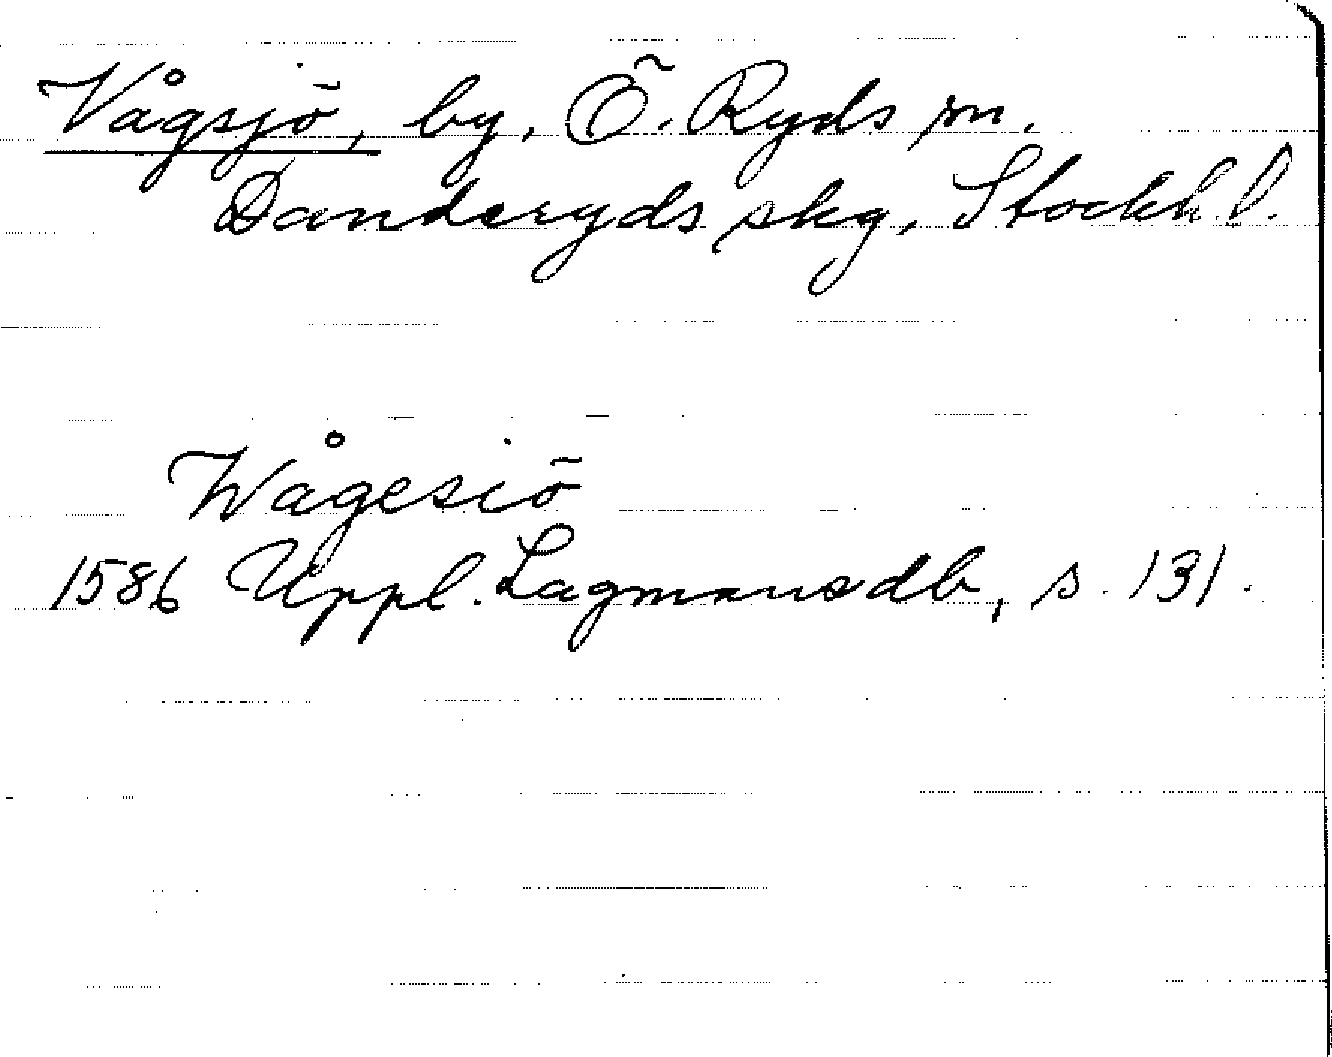 Vågsjö, by, Ö. Ryds sn.
Danderyds skg, Stockh. l.
Wågesiö
1586 Uppl. Lagmansdb, s. 131.